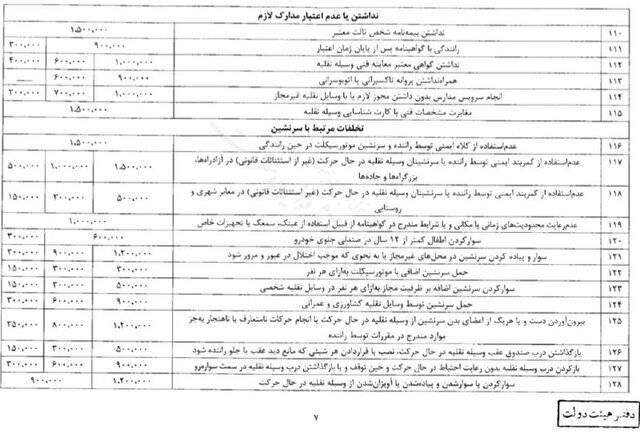 نداشتن یا عدم اعتبار مدارک لازم
۱۱۰ نداشتن بیمه‌نامه شخص ثالث معتبر ۱,۵۰۰,۰۰۰
۱۱۱ رانندگی با گواهینامه پس از پایان زمان اعتبار ۹۰۰,۰۰۰ ۳۰۰,۰۰۰
۱۱۲ نداشتن گواهی معتبر معاینه فنی وسیله نقلیه ۱,۰۰۰,۰۰۰ ۶۰۰,۰۰۰ ۴۰۰,۰۰۰
۱۱۳ همراه‌نداشتن پروانه تاکسیرانی یا اتوبوسرانی ۹۰۰,۰۰۰ ۶۰۰,۰۰۰ ــــ
۱۱۴ انجام سرویس مدارس بدون داشتن مجوز لازم یا با وسایل نقلیه غیرمجاز ۱,۰۰۰,۰۰۰ ۷۰۰,۰۰۰ ۳۰۰,۰۰۰
۱۱۵ مغایرت مشخصات فنی با کارت شناسایی وسیله نقلیه ۱,۵۰۰,۰۰۰
تخلفات مرتبط با سرنشین
۱۱۶ عدم‌استفاده از کلاه ایمنی توسط راننده و سرنشین موتورسیکلت در حین رانندگی ۱,۵۰۰,۰۰۰
۱۱۷ عدم‌استفاده از کمربند ایمنی توسط راننده یا سرنشینان وسیله نقلیه در حال حرکت (غیر از استثنائات قانونی) در آزادراه‌ها، ۱,۵۰۰,۰۰۰ ۱,۰۰۰,۰۰۰ ۵۰۰,۰۰۰
بزرگراه‌ها و جاده‌ها
۱۱۸ عدم‌استفاده از کمربند ایمنی توسط راننده یا سرنشینان وسیله نقلیه در حال حرکت (غیر استثنائات قانونی) در معابر شهری و ۵۰۰,۰۰۰ ۳۰۰,۰۰۰ ۱۵۰,۰۰۰
روستایی
۱۱۹ عدم‌رعایت محدودیت‌های زمانی یا مکانی و یا شرایط مندرج در گواهینامه از قبیل استفاده از عینک، سمعک یا تجهیزات خاص ۱,۰۰۰,۰۰۰
۱۲۰ سوارکردن اطفال کمتر از ۱۲ سال در صندلی جلوی خودرو ۶۰۰,۰۰۰ ۳۰۰,۰۰۰
۱۲۱ سوار و پیاده کردن سرنشین در محل‌های غیرمجاز یا به نحوی که موجب اختلال در عبور و مرور شود ۱,۲۰۰,۰۰۰ ۹۰۰,۰۰۰ ۳۰۰,۰۰۰
۱۲۲ حمل سرنشین اضافی با موتورسیکلت به‌ازای هر نفر ۳۰۰,۰۰۰ ۳۰۰,۰۰۰ ۱۵۰,۰۰۰
۱۲۳ سوارکردن سرنشین اضافه بر ظرفیت مجاز به‌ازای هر نفر در وسایل نقلیه شخصی ۵۰۰,۰۰۰ ۳۰۰,۰۰۰ ۱۵۰,۰۰۰
۱۲۴ حمل سرنشین توسط وسایل نقلیه کشاورزی و عمرانی ۹۰۰,۰۰۰ ۶۰۰,۰۰۰ ۳۰۰,۰۰۰
۱۲۵ بیرون‌آوردن دست و یا هریک از اعضای بدن سرنشین از وسیله نقلیه در حال حرکت یا انجام حرکات نامتعارف یا ناهنجار به‌جز ۱,۲۰۰,۰۰۰ ۸۰۰,۰۰۰ ۲۵۰,۰۰۰
موارد مندرج در مقررات توسط راننده
۱۲۶ بازگذاشتن درب صندوق عقب وسیله نقلیه در حال حرکت، نصب یا قراردادن هر شیئی که مانع دید عقب یا جلو راننده شود ۵۰۰,۰۰۰ ۳۰۰,۰۰۰ ۱۵۰,۰۰۰
۱۲۷ بازکردن درب وسیله نقلیه بدون رعایت احتیاط در حال حرکت و حین توقف و یا بازگذاشتن درب وسیله نقلیه در سمت سواره‌رو ۹۰۰,۰۰۰ ۶۰۰,۰۰۰ ۳۰۰,۰۰۰
۱۲۸ سوارکردن یا سوارشدن و پیاده‌شدن یا آویزان‌شدن از وسیله نقلیه در حال حرکت ۱,۲۰۰,۰۰۰ ۹۰۰,۰۰۰
۷
دفتر هیئت دولت